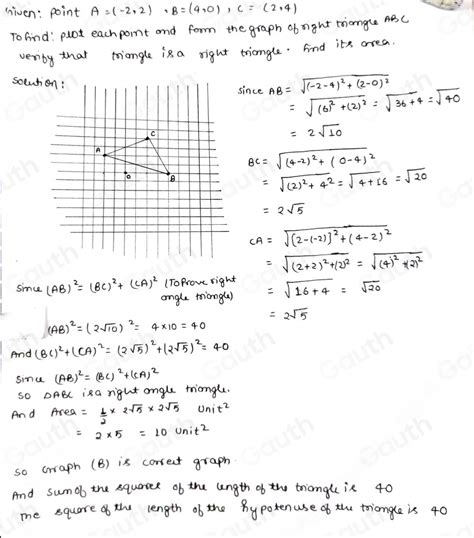 Given: point A = (-2,2) , B = (4,0) , C = (2,4)
To find: plot each point and form the graph of right triangle ABC
verify that triangle is a right triangle. find its area.
Solution:
A
C
O
B
Since AB = √(-2-4)² + (2-0)²
= √(6)² + (2)² = √36+4 = √40
= 2√10
BC = √(4-2)² + (0-4)²
= √(2)² + 4² = √4+16 = √20
= 2√5
CA = √[2-(-2)]² + (4-2)²
= √(2+2)² + (2)² = √(4)² + (2)²
= √16+4 = √20
= 2√5
Since (AB)² = (BC)² + (CA)² (To Prove right
angle triangle)
(AB)² = (2√10)² = 4×10 = 40
And (BC)² + (CA)² = (2√5)² + (2√5)² = 40
Since (AB)² = (BC)² + (CA)²
So ΔABC is a right angle triangle.
And Area = 1/2 × 2√5 × 2√5 Unit²
= 2×5 = 10 Unit²
So Graph (B) is correct graph.
And Sum of the squares of the length of the triangle is 40
The square of the length of the hypotenuse of the triangle is 40
Gauth